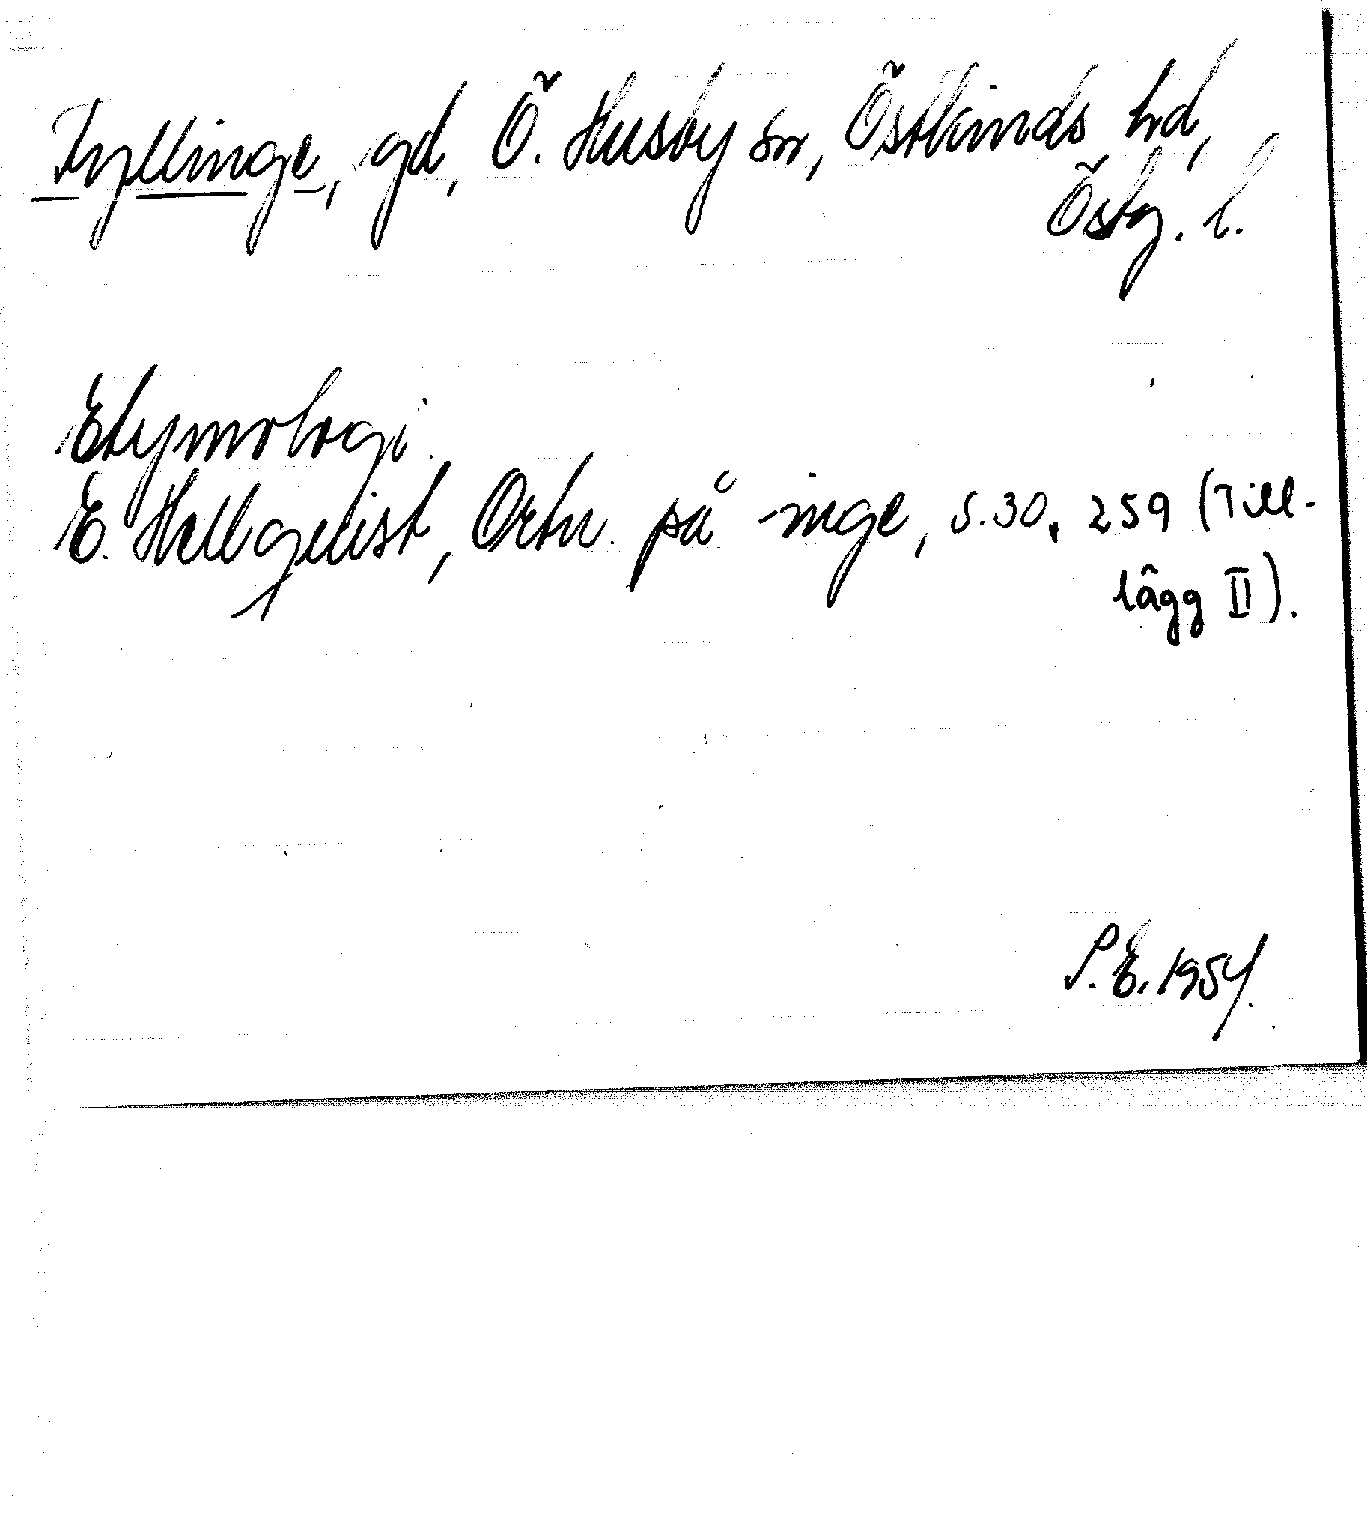 Fyllinge, gd, Ö. Husby sn, Östkinds hd,
Östg. l.
Etymologi.
E. Hellquist, Ortn. på -inge, s. 30, 259 (Till-
lägg II).
P.E. 1954.